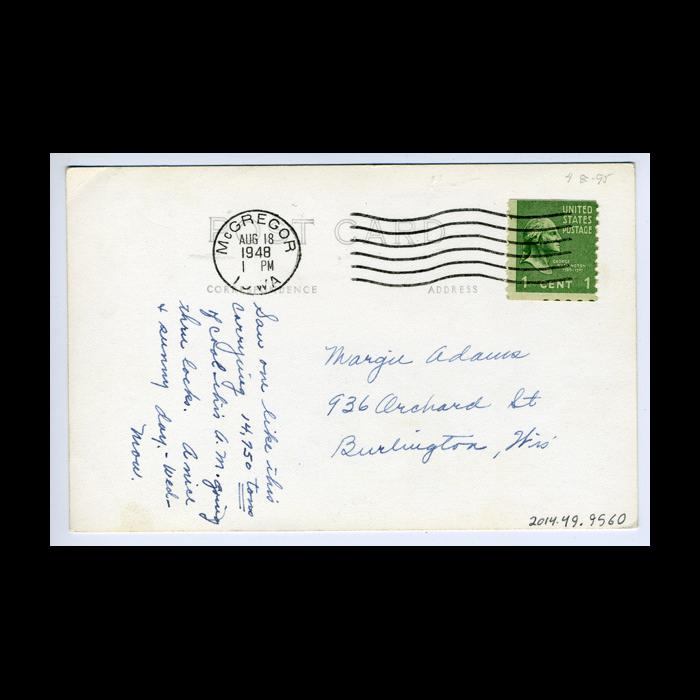 4 8c-95
POST CARD
McGREGOR
AUG 18
1948
1 PM
IOWA
UNITED
STATES
POSTAGE
GEORGE
WASHINGTON
1 CENT 1
CORRESPONDENCE
ADDRESS
Saw one like this
carrying 14,750 tons
of coal this A.M. going
thru locks. A nice
& sunny day. - Wed -
Mow.
Margie Adams
936 Orchard St
Burlington, Wis
2014.49.9560